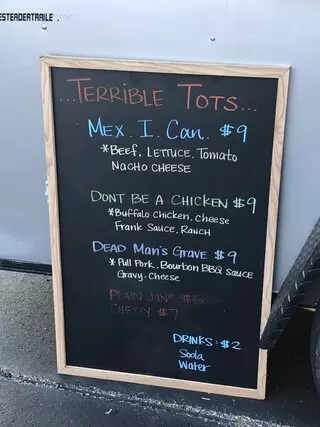 ESTERDERTRAILE
...TERRIBLE TOTS...
MEX. I. CAN. $9
*BEEF, LETTUCE, TOMATO
NACHO CHEESE
DONT BE A CHICKEN $9
*Buffalo chicken, cheese
Frank Sauce, RANCH
DEAD MAN'S GRAVE $9
*Pull Pork, Bourbon BBQ SAUCE
Gravy, Cheese
PLAIN JANE $6
CHEZZY $7
DRINKS: $2
Soda
Water